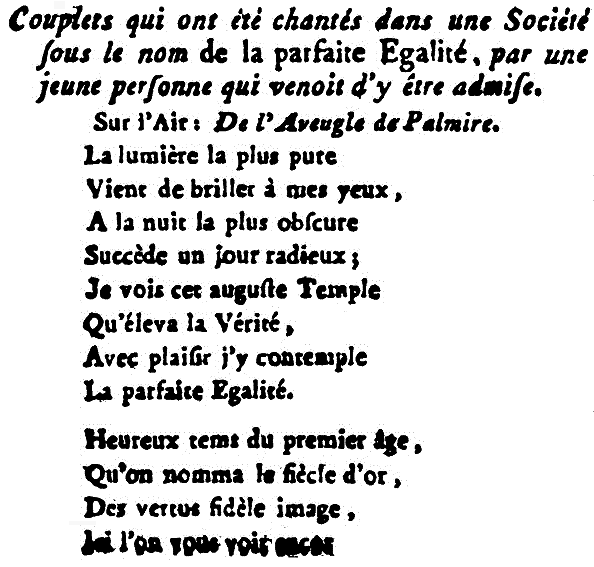 Couplets qui ont été chantés dans une Société
ſous le nom de la parfaite Egalité, par une
jeune perſonne qui venoit d'y être admiſe.
Sur l'Air: De l'Aveugle de Palmire.
La lumière la plus pure
Vient de briller à mes yeux,
A la nuit la plus obſcure
Succède un jour radieux;
Je vois cet auguſte Temple
Qu'éleva la Vérité,
Avec plaiſir j'y contemple
La parfaite Egalité.
Heureux tems du premier âge,
Qu'on nomma le ſiècle d'or,
Des vertus fidèle image,
Ici l'on vous voit encor